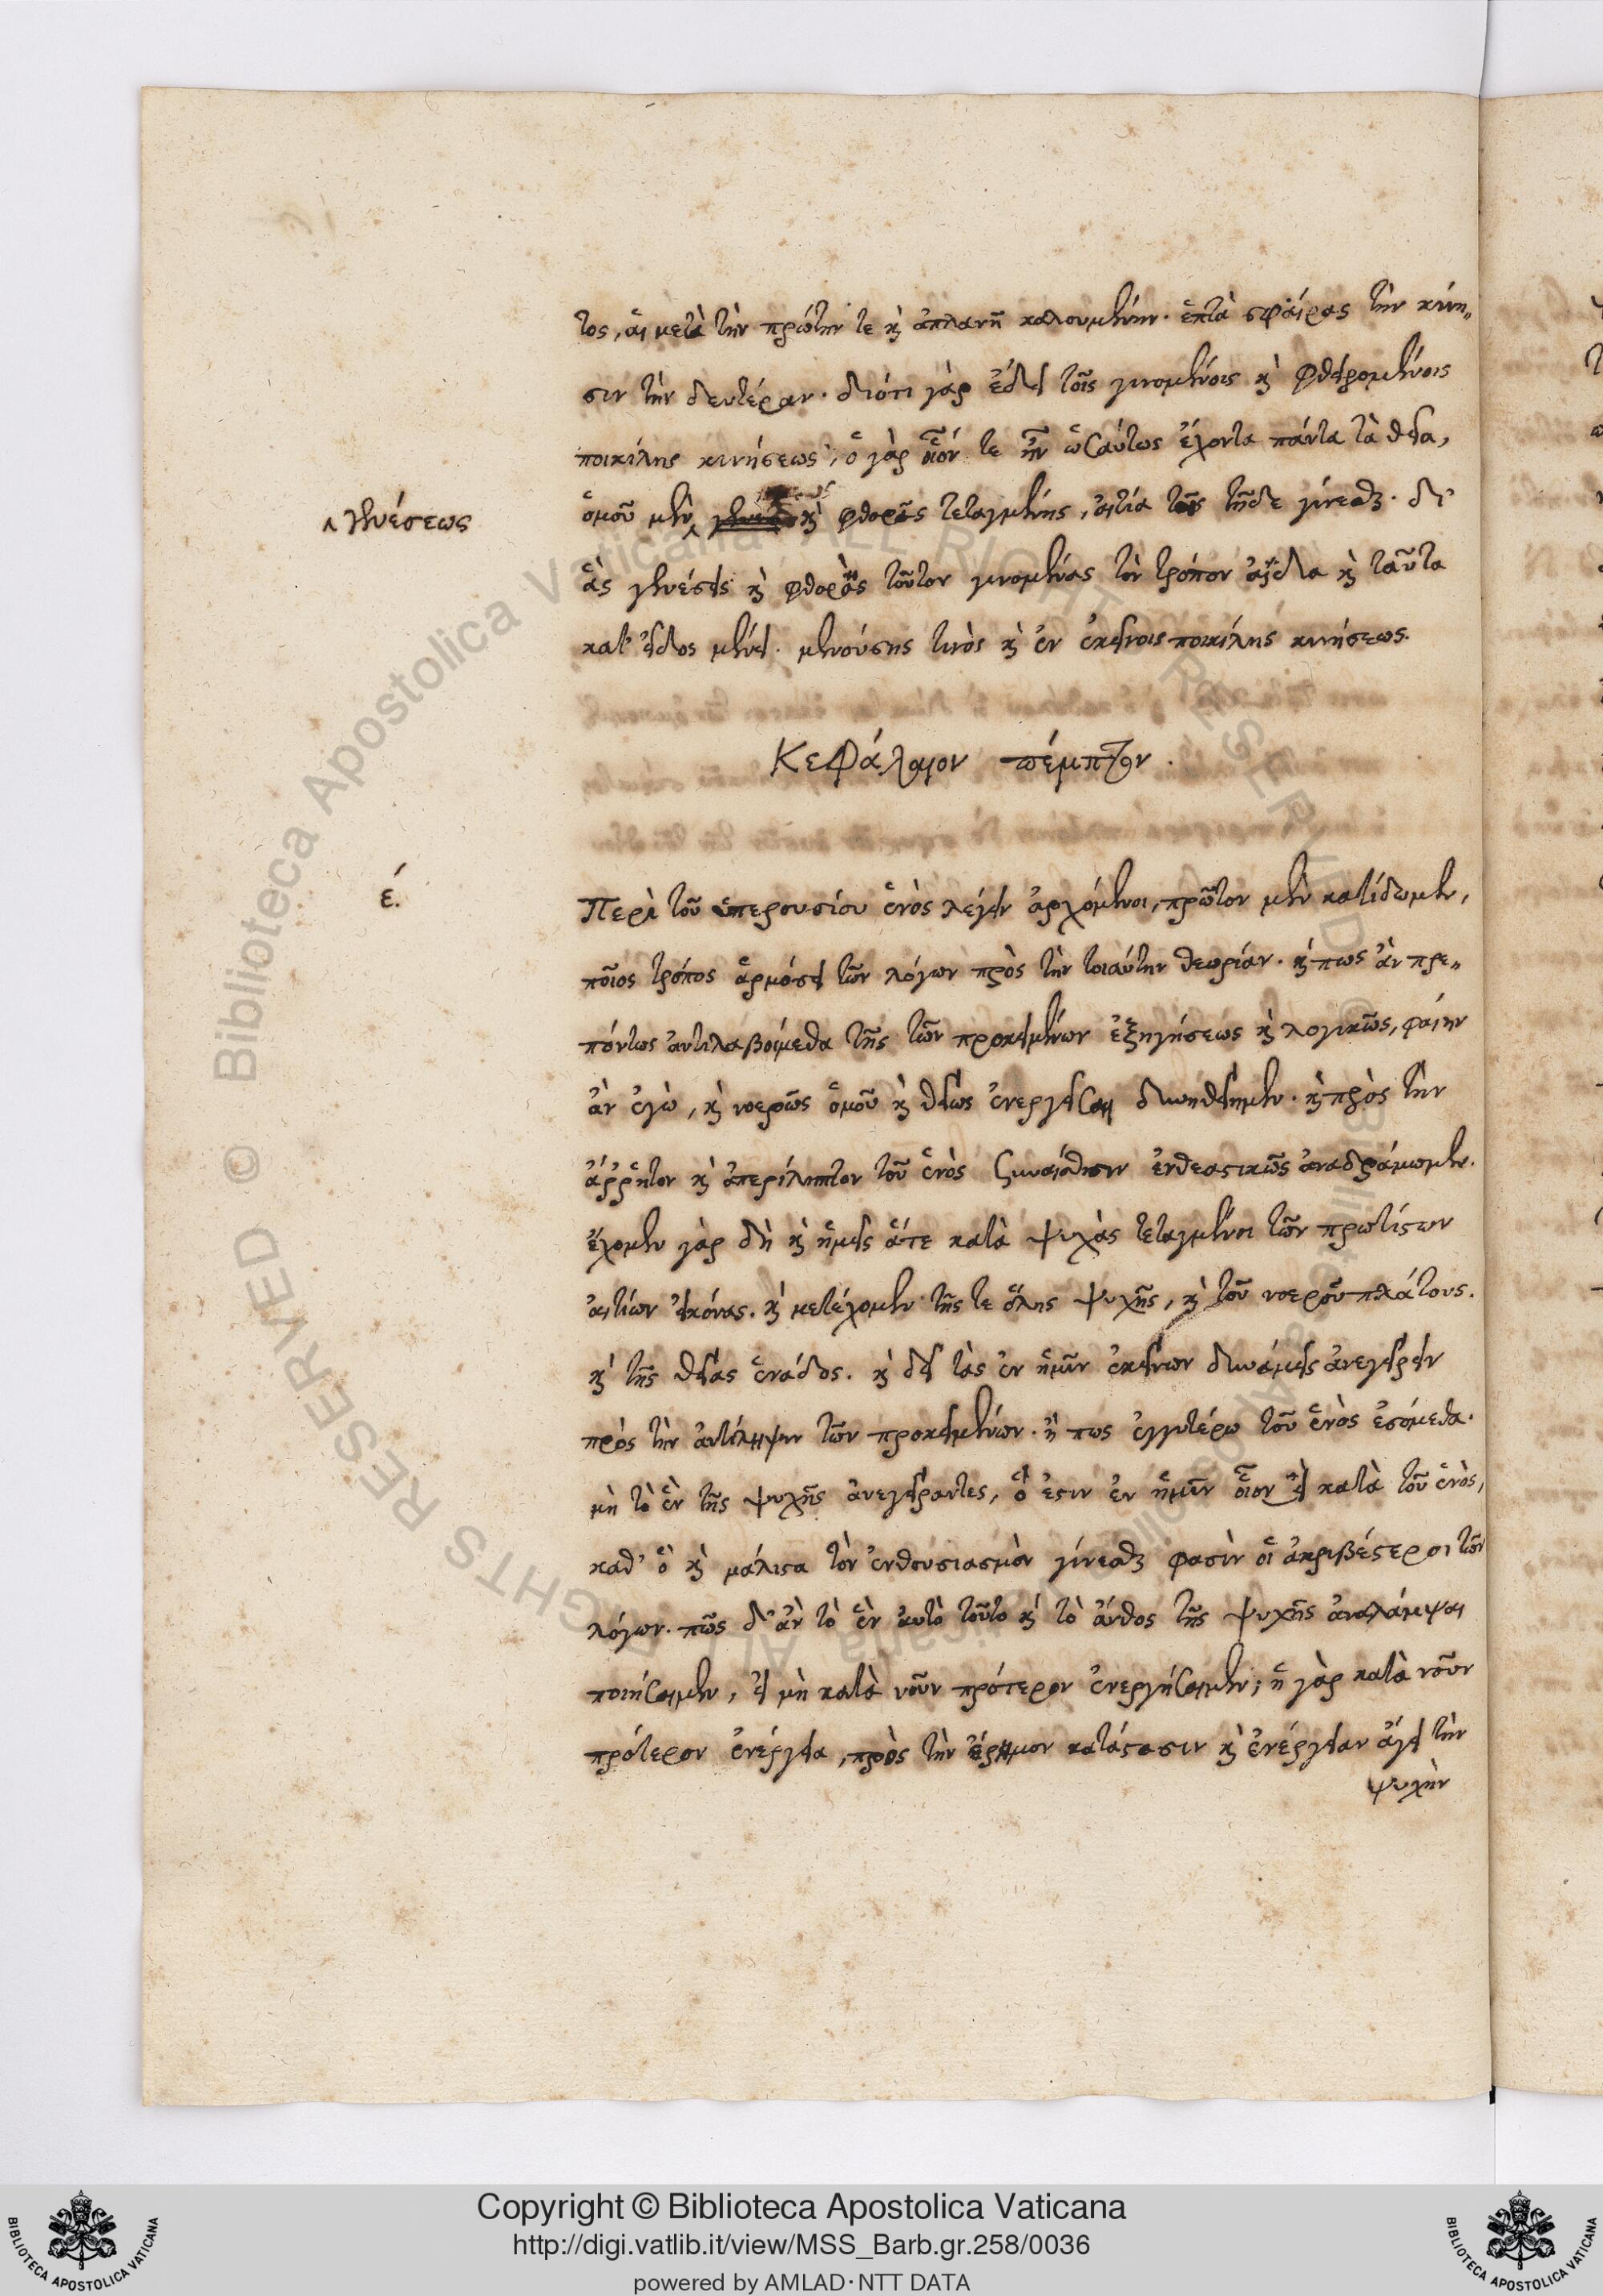 τος, αἱ μετὰ τὴν πρώτην τε καὶ ἀπλανῆ καλουμένην. ἑπτὰ σφαίρας τὴν κίνη„
σιν τὴν δευτέραν. διότι γὰρ ἔδει τοῖς γινομένοις καὶ φθειρομένοις
ποικίλης κινήσεως, ὁ γὰρ οἷόν τε ἦν ὡσαύτως ἔχοντα πάντα τὰ θεῖα,
ὁμοῦ μὲν ‸ καὶ φθορᾶς τεταγμένης, αἰτία τοῖς τῇδε γίνεσθαι. δι'
‸ γενέσεως
ἃς γενέσεις καὶ φθορὰς τοῦτον γινομένας τὸν τρόπον ἀΐδια καὶ ταῦτα
κατ' εἶδος μένει. μενούσης τινὸς καὶ ἐν ἐκείνοις ποικίλης κινήσεως.
Κεφάλαιον πέμπτον.
έ.
Περὶ τοῦ ὑπερουσίου ἑνὸς λέγειν ἀρχόμενοι, πρῶτον μὲν κατίδωμεν,
ποῖος τρόπος ἁρμόσει τῶν λόγων πρὸς τὴν τοιαύτην θεωρίαν. καί πως ἂν πρε„
πόντως ἀντιλαβοίμεθα τῆς τῶν προκειμένων ἐξηγήσεως καὶ λογικῶς, φαίην
ἂν ἐγὼ, καὶ νοερῶς ὁμοῦ καὶ θείως ἐνεργεῖσαι δυνηθείημεν. καὶ πρὸς τὴν
ἄῤῥητον καὶ ἀπερίληπτον τοῦ ἑνὸς συναίσθησιν ἐνθεαστικῶς ἀναδράμωμεν.
ἔχομεν γὰρ δὴ καὶ ἡμεῖς ἅτε κατὰ ψυχὰς τεταγμένοι τῶν πρωτίστων
αἰτίων εἰκόνας. καὶ μετέχομεν τῆς τε ὅλης ψυχῆς, καὶ τοῦ νοεροῦ πλάτους.
καὶ τῆς θείας ἑνάδος. καὶ δεῖ τὰς ἐν ἡμῖν ἐκείνων δυνάμεις ἀνεγείρειν
πρὸς τὴν ἀντίληψιν τῶν προκειμένων. ἤ πως ἐγγυτέρω τοῦ ἑνὸς ἐσόμεθα.
μὴ τὸ ἓν τῆς ψυχῆς ἀνεγείραντες, ὅ ἐστιν ἐν ἡμῖν οἷον εἰ κατὰ τοῦ ἑνὸς,
καθ' ὃ καὶ μάλιστα τὸν ἐνθουσιασμὸν γίνεσθαι φασὶν οἱ ἀκριβέστεροι τῶν
λόγων. πῶς δ' ἂν τὸ ἓν αὐτὸ τοῦτο καὶ τὸ ἄνθος τῆς ψυχῆς ἀναλάμψαι
ποιήσαιμεν, εἰ μὴ κατὰ νοῦν πρότερον ἐνεργήσαιμεν; ἡ γὰρ κατὰ νοῦν
πρότερον ἐνέργεια, πρὸς τὴν ἔρημον κατάστασιν καὶ ἐνέργειαν ἄγει τὴν
ψυχὴν
Copyright © Biblioteca Apostolica Vaticana
http://digi.vatlib.it/view/MSS_Barb.gr.258/0036
powered by AMLAD·NTT DATA